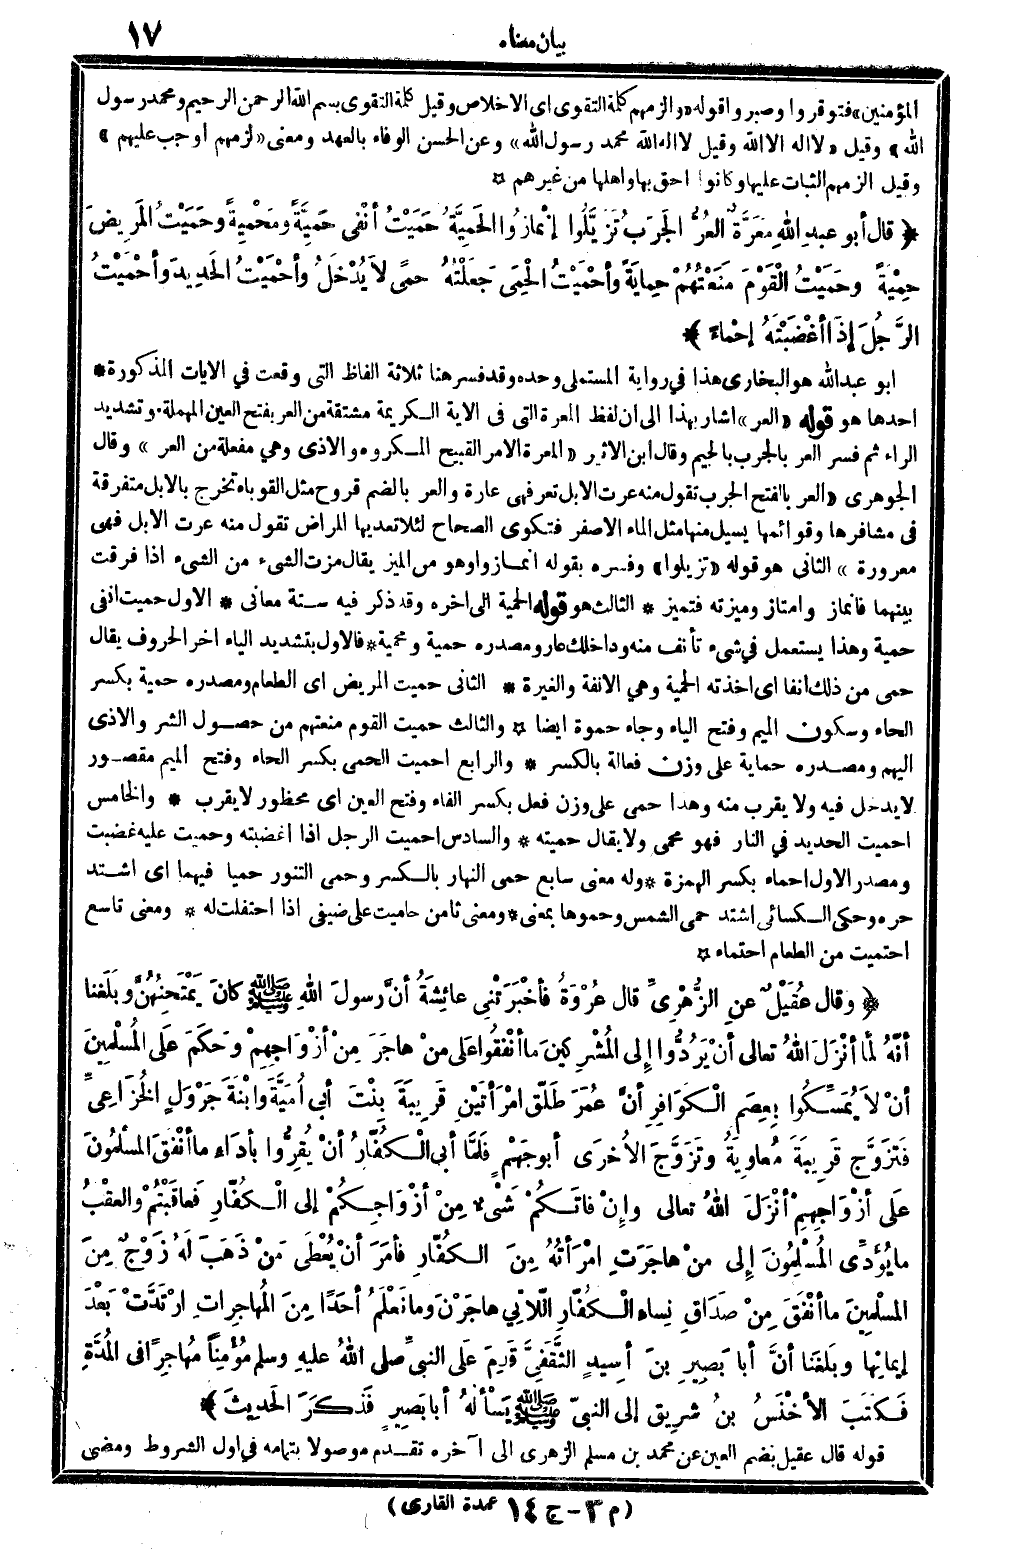 بيان معناه
١٧
المؤمنين» فتوقروا وصبروا قوله «والزمهم كلمة التقوى اى الاخلاص وقيل كلمة التقوى بسم الله الرحمن الرحيم ومحمد رسول
الله» وقيل «لا اله الا الله وقيل لا اله الا الله محمد رسول الله» وعن الحسن الوفاء بالعهد ومعنى «لزمهم اوجب عليهم»
وقيل الزمهم الثبات عليها وكانوا احق بها واهلها من غيرهم ☆
﴿ قال أبو عبد اللهِ مَعَرَّةٌ العُرُّ الجَرَبُ تُزَيَّلُوا إنْمازُوا الحَمِيَّةُ حَمَيْتُ أنْفِى حَمِيَّةً ومَحْمِيةً وحَمَيْتُ المَرِيضَ
حِمْيَةً وحَمَيْتُ الْقَوْمَ مَنَعْتُهُمْ حِمايَةً وأحْمَيْتُ الحِمَى جَعَلْتُهُ حمًى لاَ يُدْخَلُ وأحْمَيْتُ الحَدِيدَ وأحْمَيْتُ
الرَّجُلَ إذَا أغْضَبْتَهُ إحْماءً ﴾
ابو عبد الله هو البخارى هذا في رواية المستملى وحده وقد فسر هنا ثلاثة الفاظ التى وقعت في الايات المذكورة *
احدها هو قوله «العر» اشار بهذا الى ان لفظ المعرة التى فى الاية الكريمة مشتقة من العر بفتح العين المهملة وتشديد
الراء ثم فسر العر بالجرب بالجيم وقال ابن الاثير «المعرة الامر القبيح المكروه والاذى وهي مفعلة من العر» وقال
الجوهرى «العر بالفتح الجرب تقول منه عرت الابل تعر فهى عارة والعر بالضم قروح مثل القوباء تخرج بالابل متفرقة
فى مشافرها وقوائمها يسيل منها مثل الماء الاصفر فتكوى الصحاح لئلا تعديها المراض تقول منه عرت الابل فهى
معرورة» الثانى هو قوله «تزيلوا» وفسره بقوله انمازوا وهو من الميز يقال مزت الشىء من الشىء اذا فرقت
بينهما فانماز وامتاز وميزته فتميز * الثالث هو قوله الحمية الى اخره وقد ذكر فيه ستة معانى * الاول حميت انفى
حمية وهذا يستعمل في شىء تأنف منه وداخلك عار ومصدره حمية ومحمية * فالاول بتشديد الياء اخر الحروف يقال
حمى من ذلك انفا اى اخذته الحمية وهي الانفة والغيرة * الثانى حميت المريض اى الطعام ومصدره حمية بكسر
الحاء وسكون الميم وفتح الياء وجاء حموة ايضا ☆ والثالث حميت القوم منعتهم من حصول الشر والاذى
اليهم ومصدره حماية على وزن فعالة بالكسر * والرابع احميت الحمى بكسر الحاء وفتح الميم مقصور
لا يدخل فيه ولا يقرب منه وهذا حمى على وزن فعل بكسر الفاء وفتح العين اى محظور لا يقرب * والخامس
احميت الحديد في النار فهو محمى ولا يقال حميته * والسادس احميت الرجل اذا اغضبته وحميت عليه غضبت
ومصدر الاول احماء بكسر الهمزة * وله معنى سابع حمى النهار بالكسر وحمى التنور حميا فيهما اى اشتد
حره وحكى الكسائى اشتد حمى الشمس وحموها بمعنى * ومعنى ثامن حاميت على ضيفى اذا احتفلت له * ومعنى تاسع
احتميت من الطعام احتماء ☆
﴿ وقال عُقَيْلٌ عنِ الزُّهْرِىِّ قال عُرْوَةُ فأخْبَرَتْنِى عائِشَةُ أنَّ رسولَ اللهِ ﷺ كانَ يَمْتَحِنُهُنَّ وبَلَغَنا
أنَّهُ لمَّا أنْزَلَ اللهُ تعالى أنْ يَرُدُّوا إلى المُشْرِكينَ ما أنْفَقُوا على منْ هاجَرَ مِنْ أزْوَاجِهِمْ وحَكَمَ علَى المُسْلِمِينَ
أنْ لاَ يُمَسِّكُوا بِعِصَمِ الْكَوَافِرِ أنَّ عُمَرَ طَلَّقَ امْرَأتَيْنِ قَرِيبَةَ بِنْتَ أبي أُمَيَّةَ وابْنَةَ جَرْوَلٍ الخُزَاعِيِّ
فَتَزَوَّجَ قَرِيبَةَ مُعاوِيَةُ وتَزَوَّجَ الأُخرَى أبو جَهْمٍ فَلَمَّا أبى الْكُفَّارُ أنْ يُقِرُّوا بأدَاءِ ما أنْفَقَ المسْلِمُونَ
علَى أزْوَاجِهِمْ أنْزَلَ اللهُ تعالى وإنْ فاتَكُمْ شَىْءٌ مِنْ أزْوَاجِكُمْ إلى الْكُفَّارِ فَعاقَبْتُمْ والعقْبُ
ما يُؤَدِّى المُسْلِمُونَ إلى منْ هاجَرَتِ امْرَأتُهُ مِنَ الكُفَّارِ فأمَرَ أنْ يُعْطَى مَنْ ذَهَبَ لَهُ زَوْجٌ مِنَ
المسْلِمِينَ ما أنْفَقَ مِنْ صَدَاقِ نِساءِ الْكُفَّارِ اللاَّتِي هاجَرْنَ وما نَعْلَمُ أحَدًا مِنَ المُهاجِرَاتِ ارْتَدَّتْ بَعْدَ
إيمانِها وبَلَغَنا أنَّ أبا بَصِيرِ بنَ أسِيدٍ الثَّقَفِيَّ قَدِمَ علَى النبيِّ صلى اللهُ عليهِ وسلم مُؤْمِناً مُهاجِرًا فى المُدَّةِ
فَكَتَبَ الأخْنَسُ بنُ شَرِيقٍ إلى النبيِّ ﷺ يَسْألُهُ أبا بَصِيرٍ فَذَكَرَ الحَدِيثَ ﴾
قوله قال عقيل بضم العين عن محمد بن مسلم الزهرى الى آخره تقدم موصولا بتمامه في اول الشروط ومضى
(م ٣ - ج ١٤ عمدة القارى)